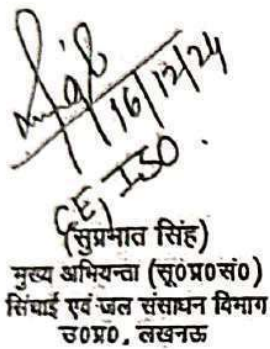 16/12/24
CE, ISO.
(सुप्रभात सिंह)
मुख्य अभियन्ता (सू०प्र०सं०)
सिंचाई एवं जल संसाधन विभाग
उ०प्र०, लखनऊ